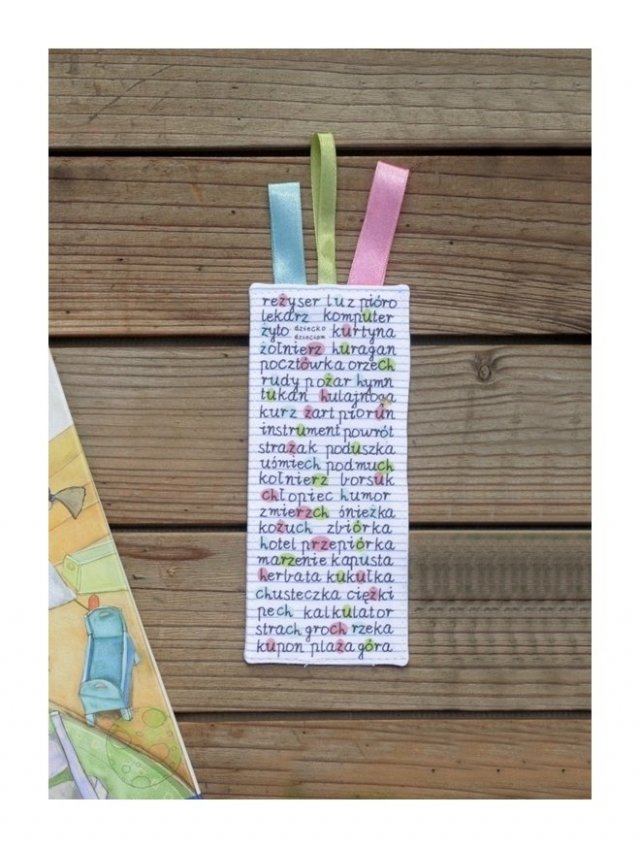 reżyser luz pióro
lekarz komputer
żyto dziecko dzieciom kurtyna
żołnierz huragan
pocztówka orzech
rudy pożar hymn
tukan hulajnoga
kurz żart piorun
instrument powrót
strażak poduszka
uśmiech podmuch
kołnierz borsuk
chłopiec humor
zmierzch śnieżka
kożuch zbiórka
hotel przepiórka
marzenie kapusta
herbata kukułka
chusteczka ciężki
pech kalkulator
strach groch rzeka
kupon plaża góra